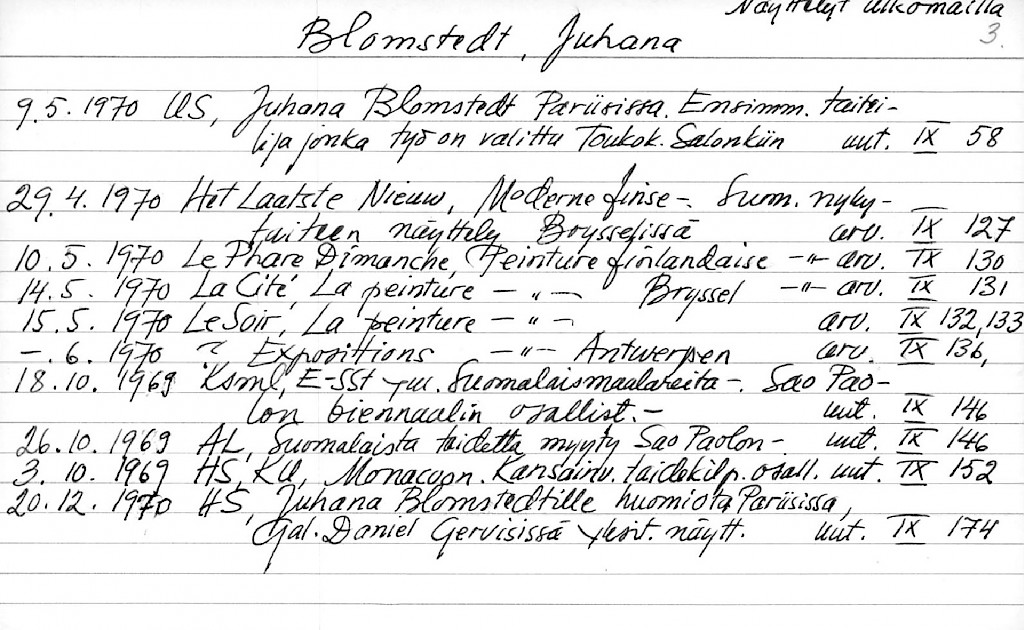 Näyttelyt ulkomailla
3.
Blomstedt, Juhana
9.5.1970 US, Juhana Blomstedt Pariisissa. Ensimm. taitei-
lija jonka työ on valittu Toukok. Salonkiin uut. IX 58
29.4.1970 Het Laatste Nieuw, Moderne finse-. Suom. nyky-
taiteen näyttely Brysselissä arv. IX 127
10.5.1970 Le Phare Dimanche, Peinture finlandaise -"- arv. IX 130
14.5.1970 La Cité, La peinture -"- Bryssel -"- arv. IX 131
15.5.1970 Le Soir, La peinture -"- arv. IX 132,133
-.6.1970 ?, Expositions -"- Antwerpen arv. IX 136,
18.10.1969 Ksml, E-SSt ym. Suomalaismaalareita-. Sao Pao-
lon biennaalin osallist.- uut. IX 146
26.10.1969 AL, Suomalaista taidetta myyty Sao Paolon-. uut. IX 146
3.10.1969 HS, KU, Monacon. Kansainv. taidekilp. osall. uut. IX 152
20.12.1970 HS, Juhana Blomstedtille huomiota Pariisissa,
Gal. Daniel Gervisissä yksit. näytt. uut. IX 174